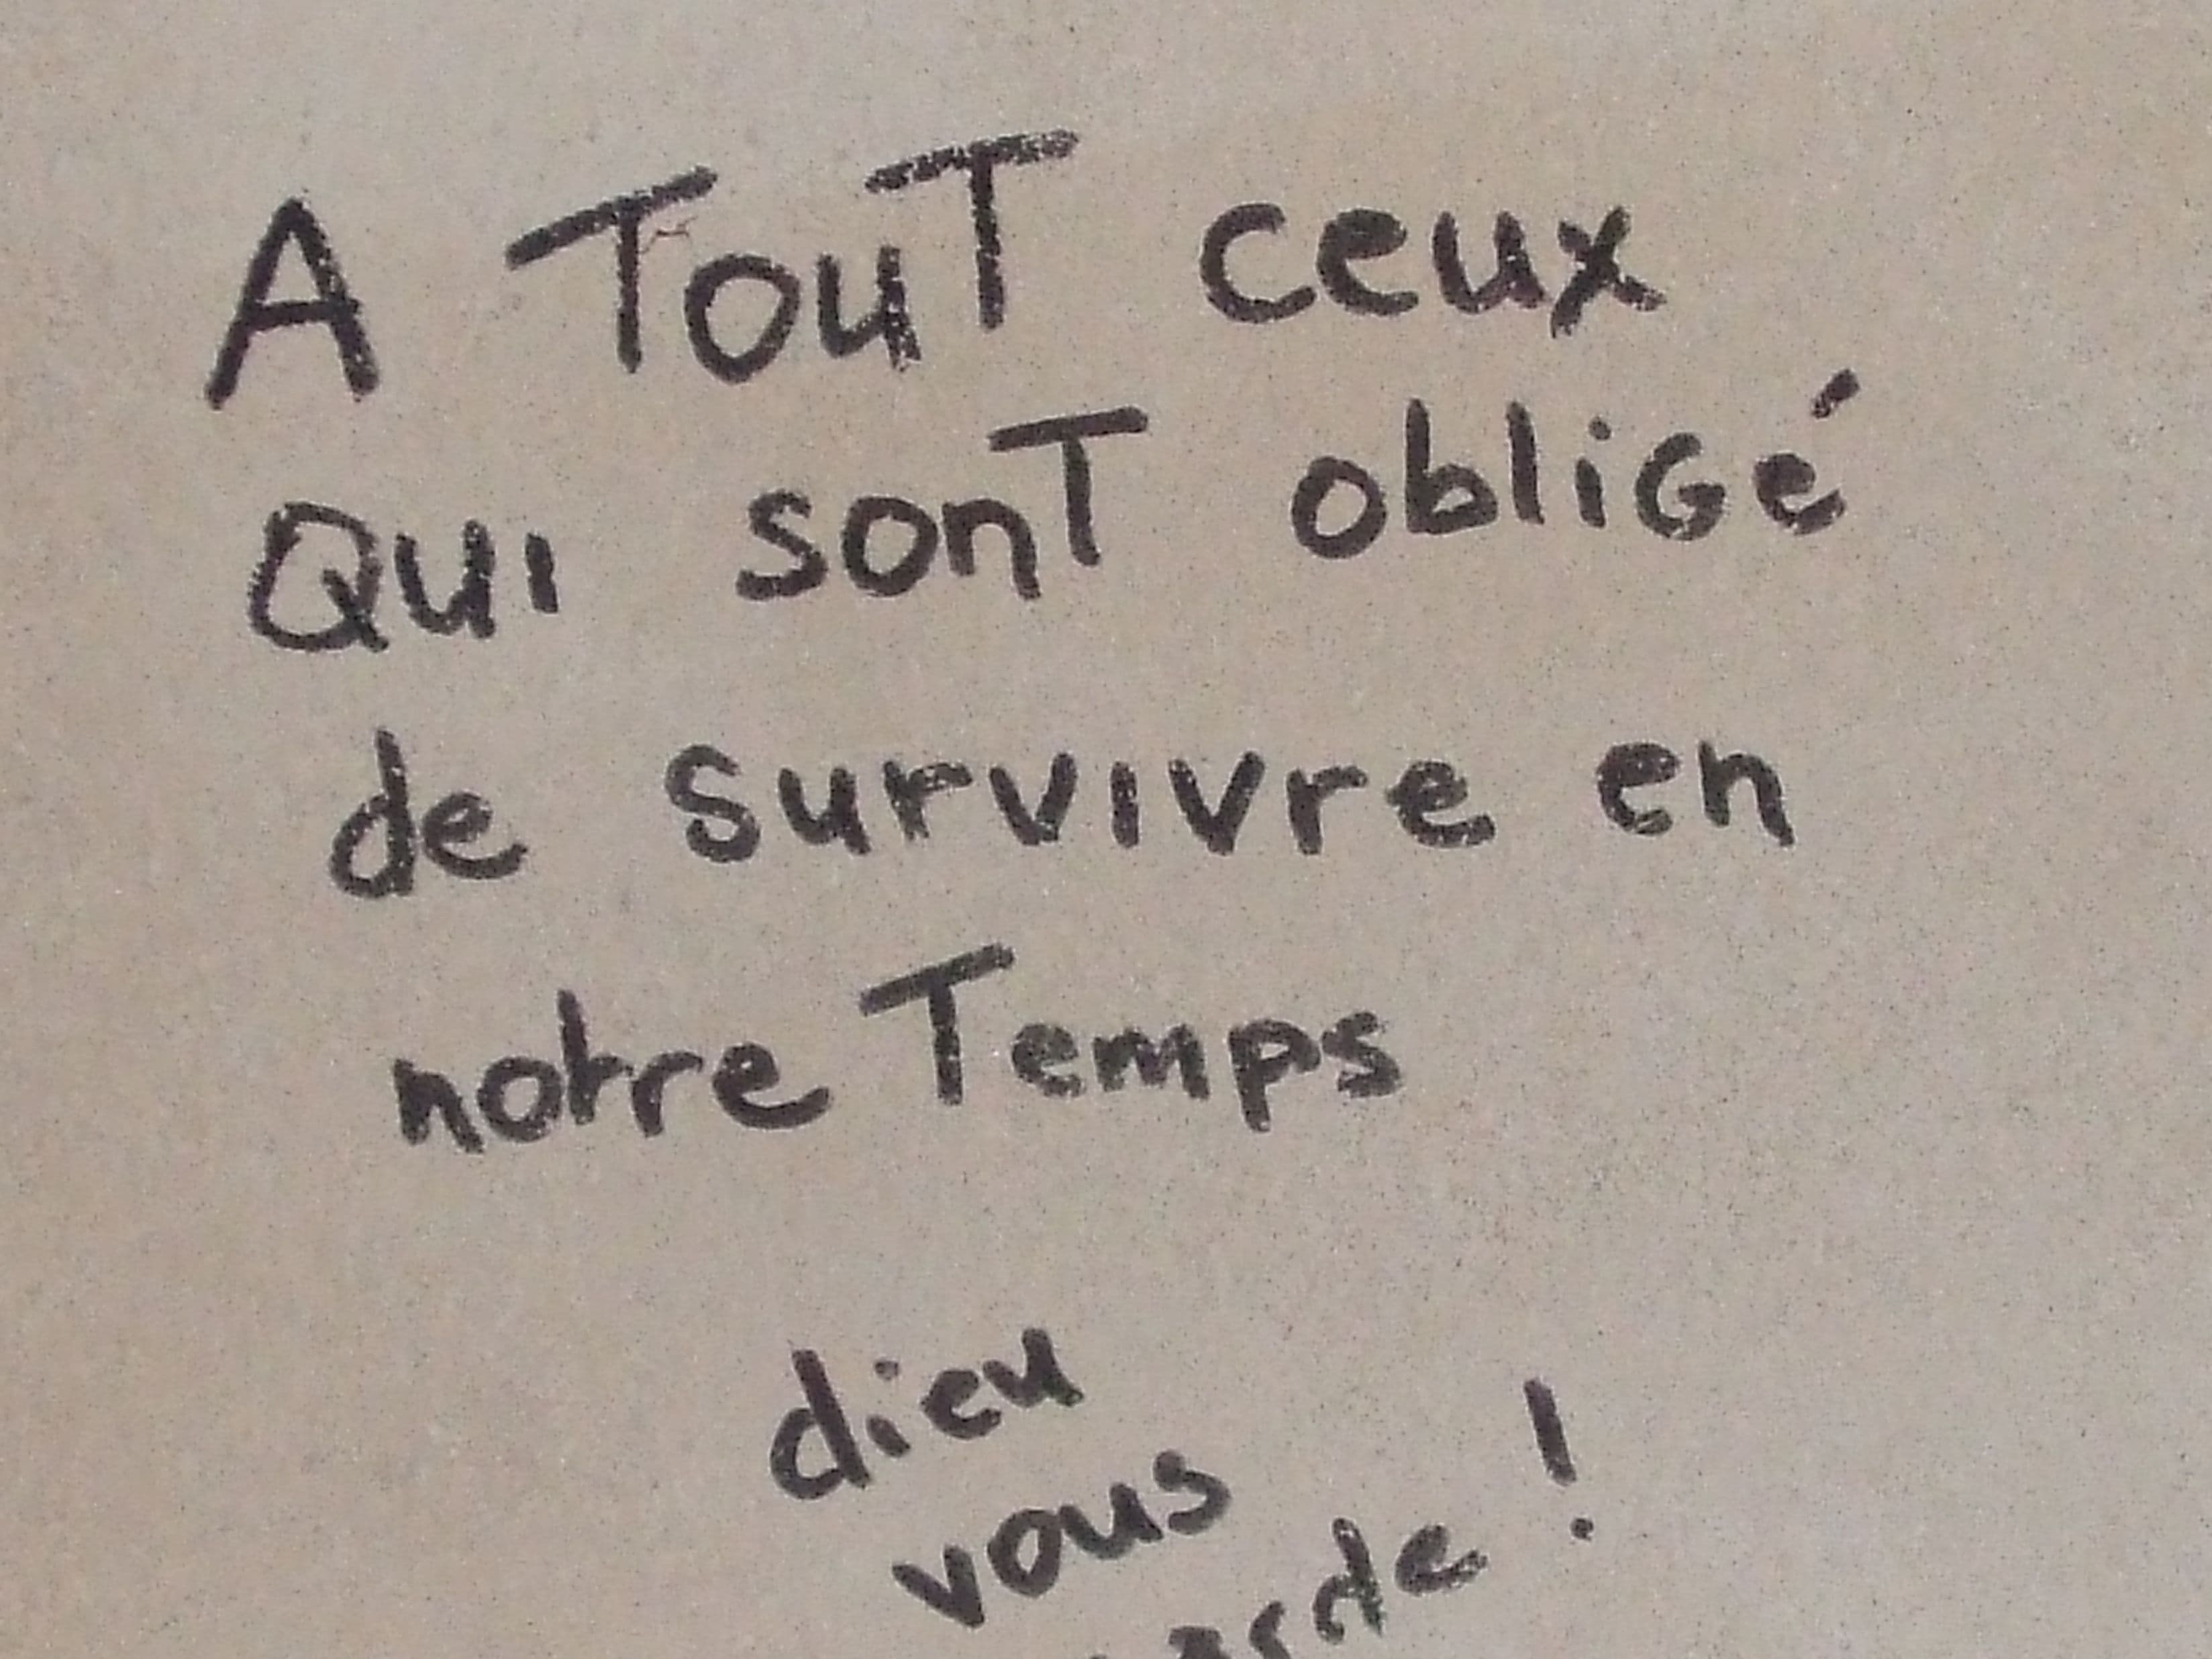 A TouT ceux
QUI sonT obligé
de survivre en
notre Temps
dieu
vous
!